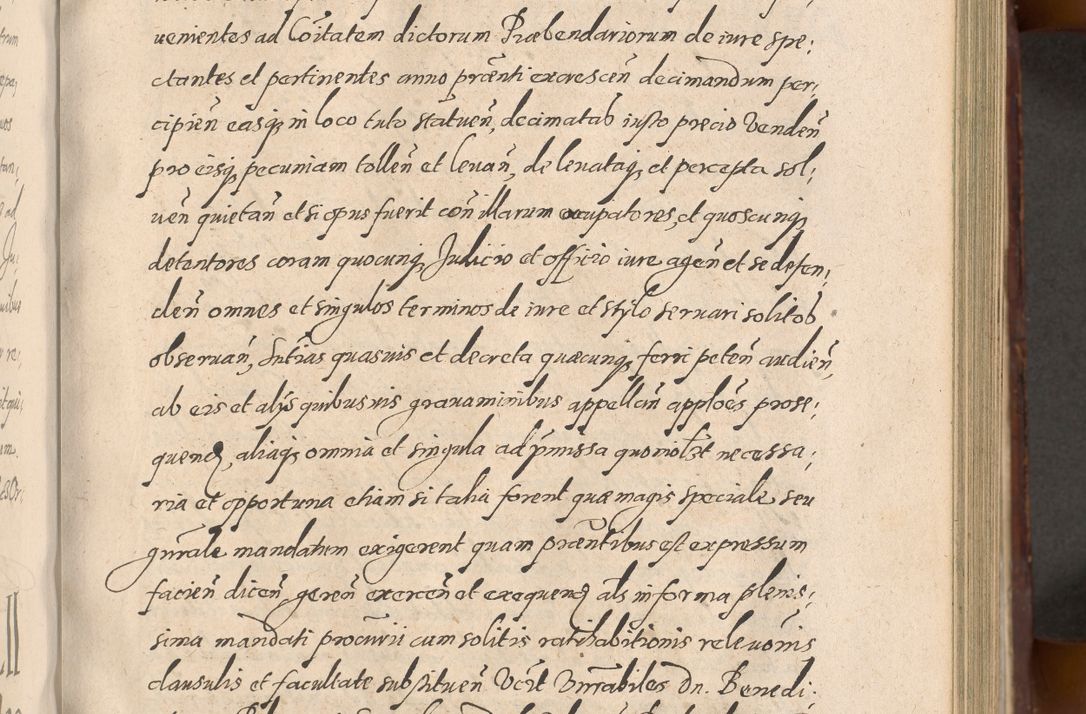 uenientes ad Cõitatem dictorum Præbendariorum de iure spe;
ctantes et pertinentes anno præñti excresceñ decimandum per;
cipieñ easq, in loco tuto statueñ, decimatab iusto precio vendeñ
pro eisq, pecuniam tolleñ et leuañ, de leuatiq, et percepta sol;
ueñ quietañ et si opus fuerit coñ illarum occupatores, et quoscunq,
detentores coram quocunq, Judicio et officio iure ageñ et se defen;
deñ omnes et singulos terminos de iure et stylo seruari solitob
obseruañ, Sñtias quasuis et decreta quæcunq, ferri peteñ audieñ,
ab eis et alijs quibusuis grauaminibus appellañ applões prose;
quend, aliaq, omnia et singula ad pmissa quomolzt necessa;
ria et opportuna etiam si talia forent quæ magis speciale seu
gnrale mandatum exigerent quam præñtibus est expressum
facieñ diceñ, gereñ exerceñ et exequend als in forma plenis;
sima mandati procurii cum solitis ratihabitionis releuonis
clausulis et facultate substitueñ Vcit Vnrabiles Dn. Benedi;